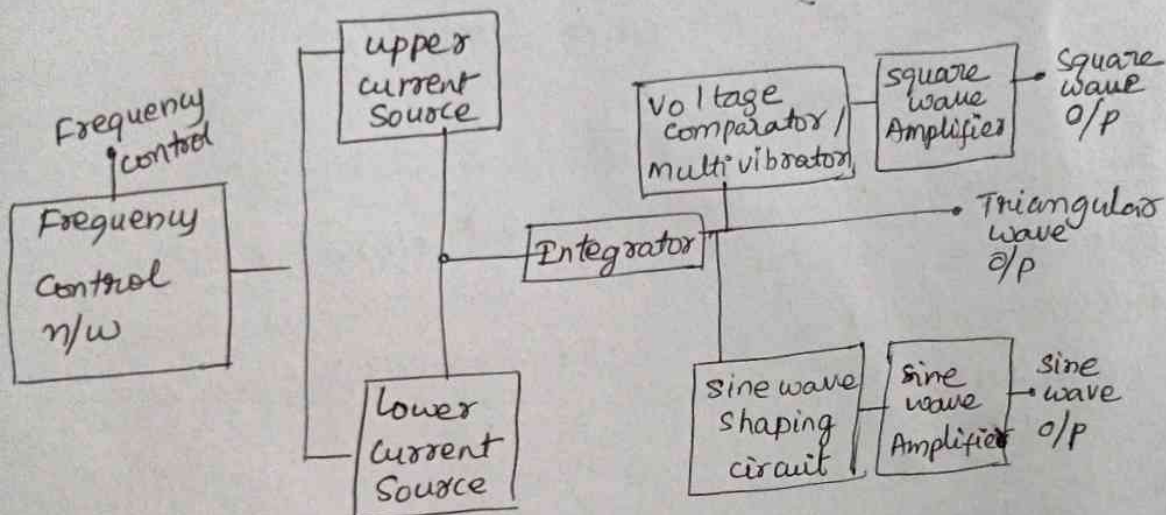 Frequency
control
Frequency
Control
n/w
upper
current
Source
Lower
Current
Source
Entegrator
Voltage
Comparator/
multivibrator
Square
wave
Amplifier
Square
wave
O/P
Triangular
wave
O/P
Sine wave
Shaping
circuit
Sine
wave
Amplifier
Sine
wave
O/P